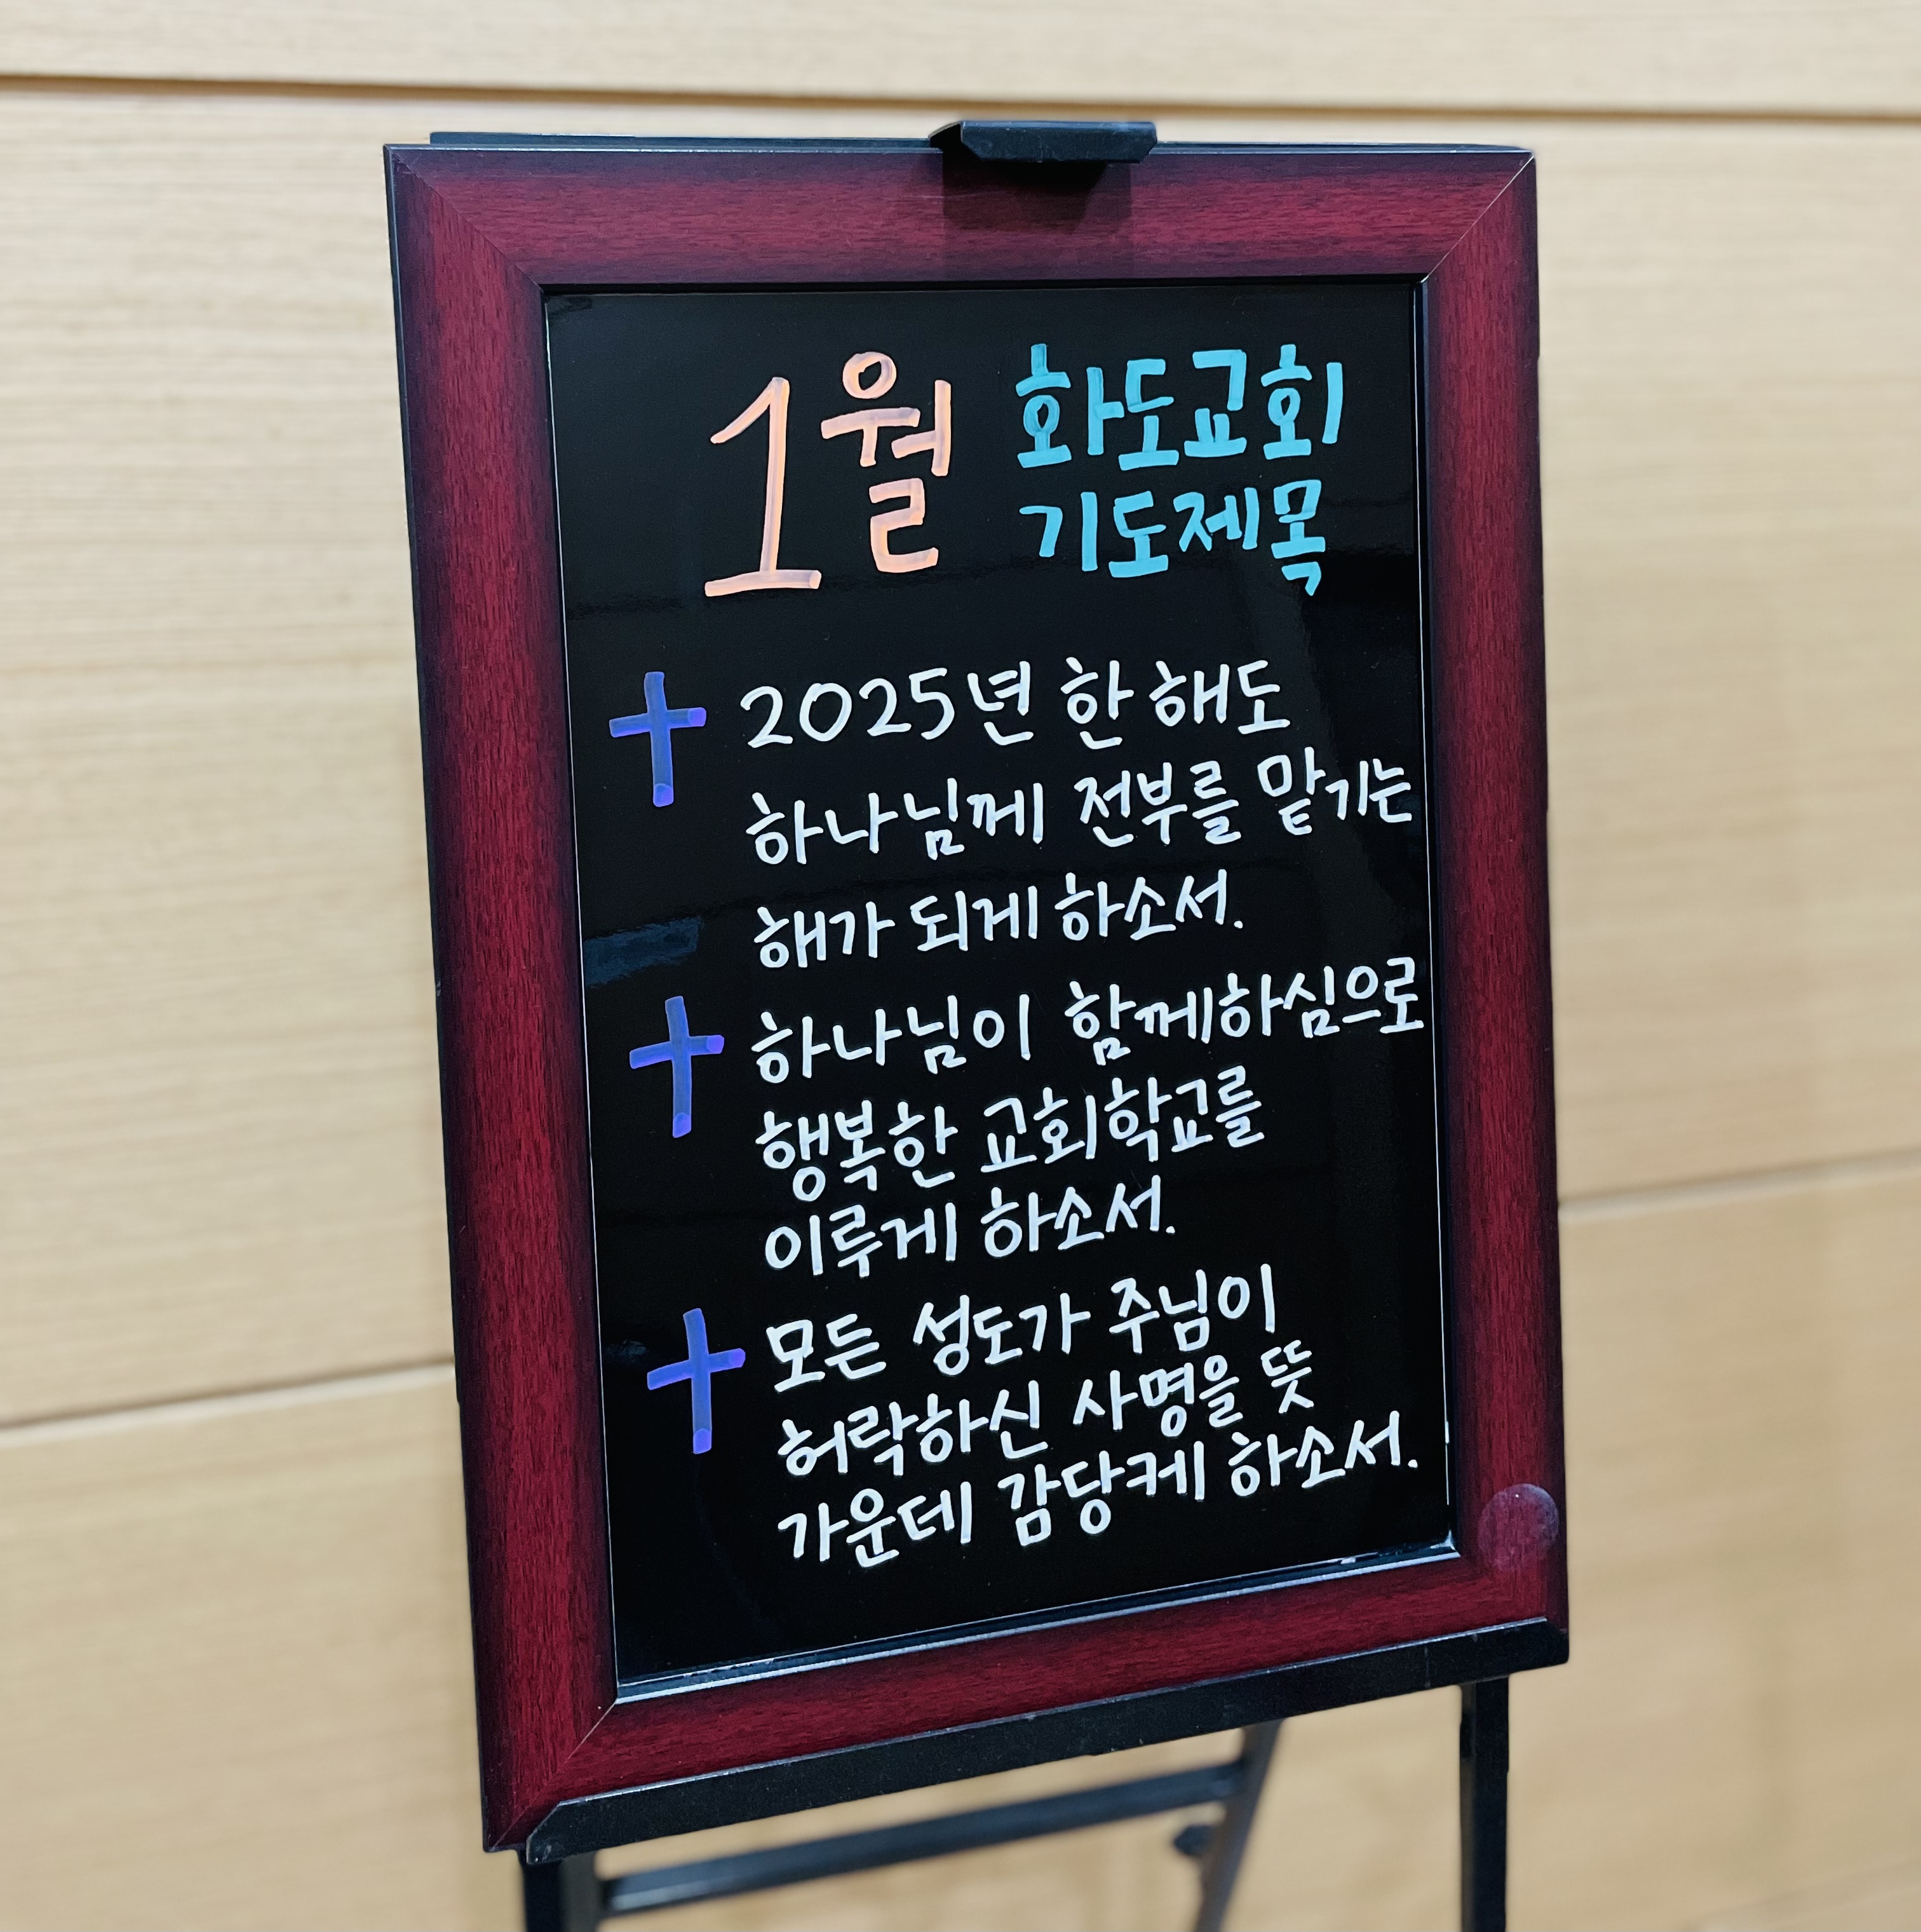 1월 화도교회
기도제목
2025년 한 해도
하나님께 전부를 맡기는
해가 되게 하소서.
하나님이 함께하심으로
행복한 교회학교를
이루게 하소서.
모든 성도가 주님이
허락하신 사명을 뜻
가운데 감당케 하소서.